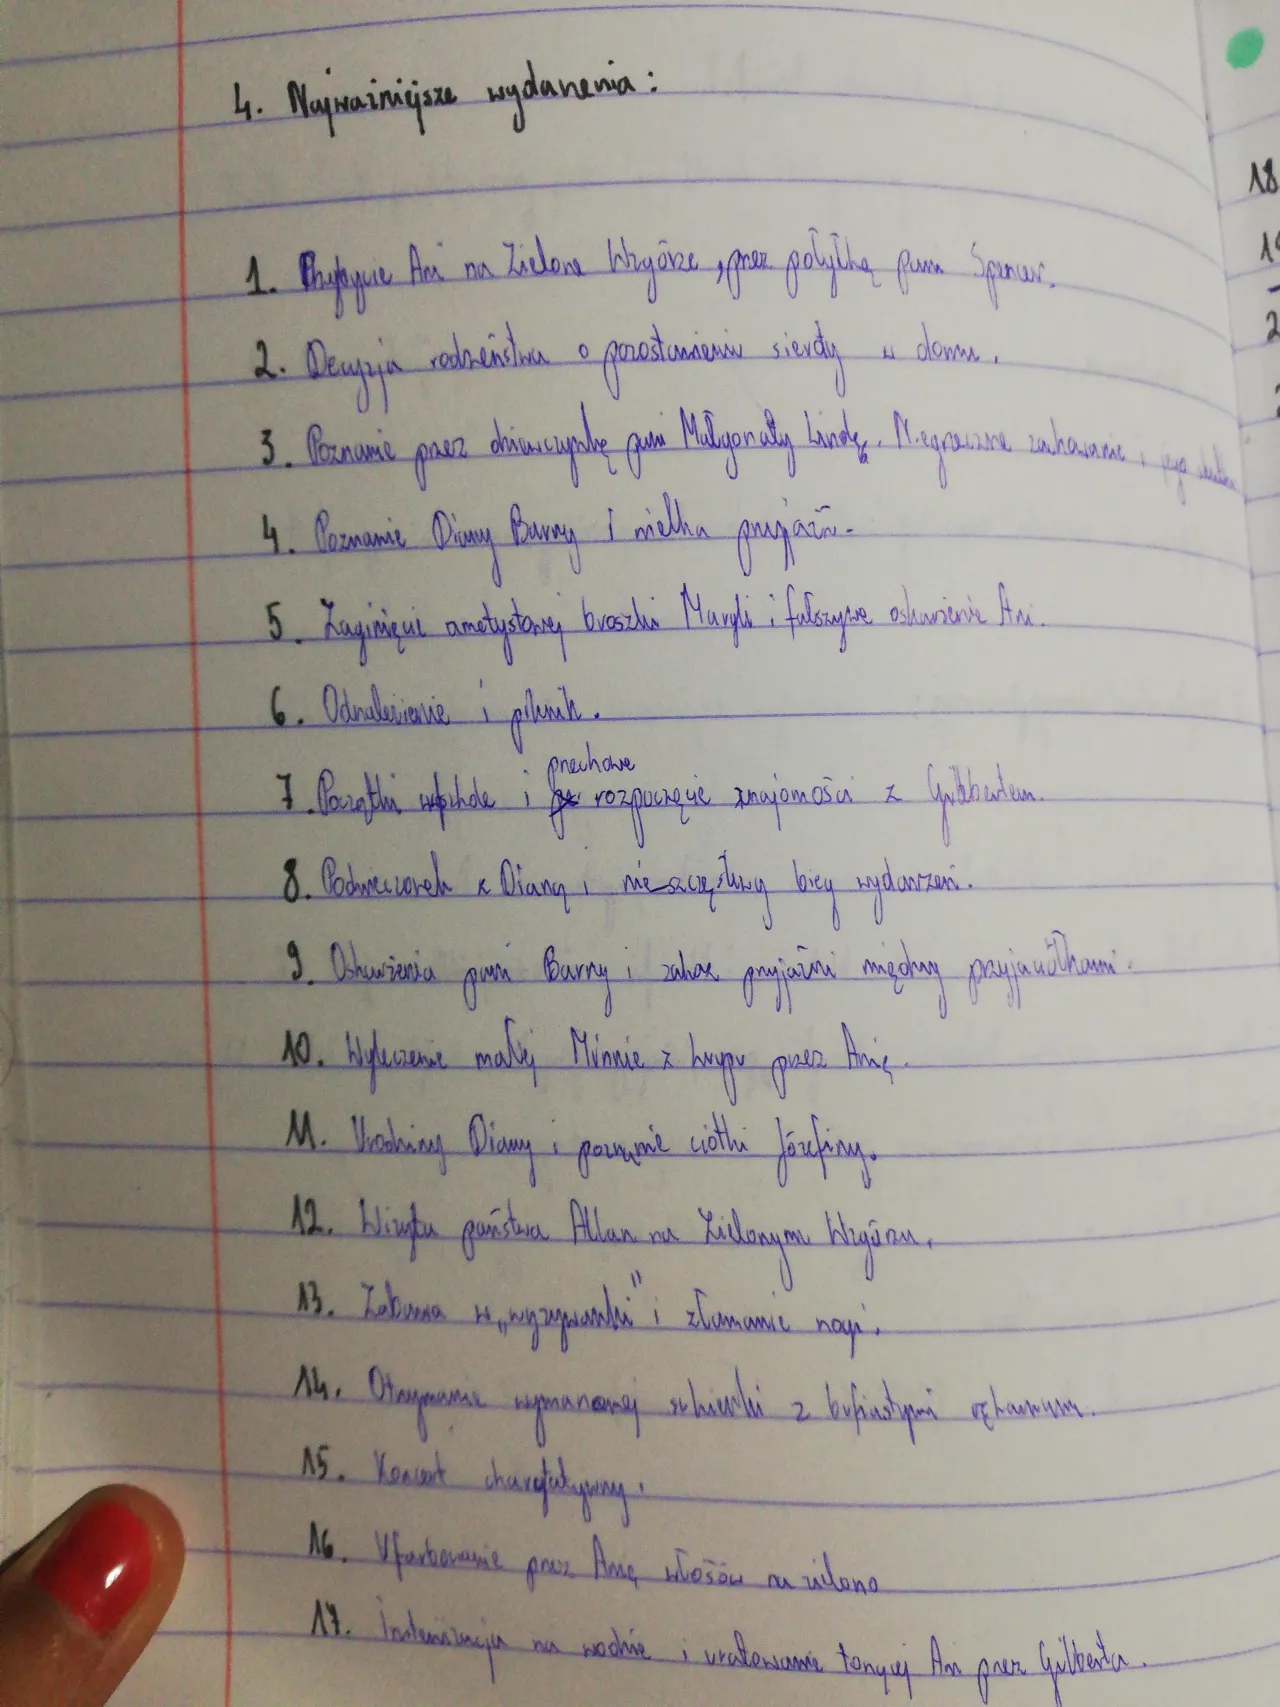 4. Najważniejsze wydarzenia:
18
1. Przybycie Ani na Zielone Wzgórze, przez pomyłkę pani Spencer.
2. Decyzja rodzeństwa o pozostawieniu sieroty w domu.
3. Poznanie przez dziewczynkę pani Małgorzaty Linde. Niegrzeczne zachowanie i jego
4. Poznanie Diany Barry i wielka przyjaźń.
5. Zaginięcie ametystowej broszki Maryli i fałszywe oskarżenie Ani.
6. Odnalezienie i piknik.
7. Początki w szkole i pechowe rozpoczęcie znajomości z Gilbertem.
8. Podwieczorek z Dianą i nieszczęśliwy bieg wydarzeń.
9. Oskarżenia pani Barry i zakaz przyjaźni między przyjaciółkami.
10. Wyleczenie małej Minnie z krupu przez Anię.
11. Urodziny Diany i poznanie ciotki Józefiny.
12. Wizyta państwa Allan na Zielonym Wzgórzu.
13. Zabawa w „wyzywanki" i złamanie nogi.
14. Otrzymanie wymarzonej sukienki z bufiastymi rękawami.
15. Koncert charytatywny.
16. Ufarbowanie przez Anię włosów na zielono
17. Inscenizacja na wodzie i uratowanie tonącej Ani przez Gilberta.